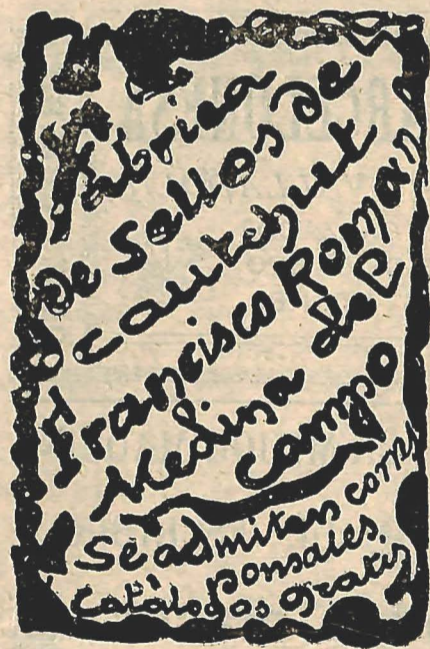 Fábrica
de Sellos de
cautchut
Francisco Roman
Medina del
Campo
Se admiten corres
ponsales.
Catálogos gratis